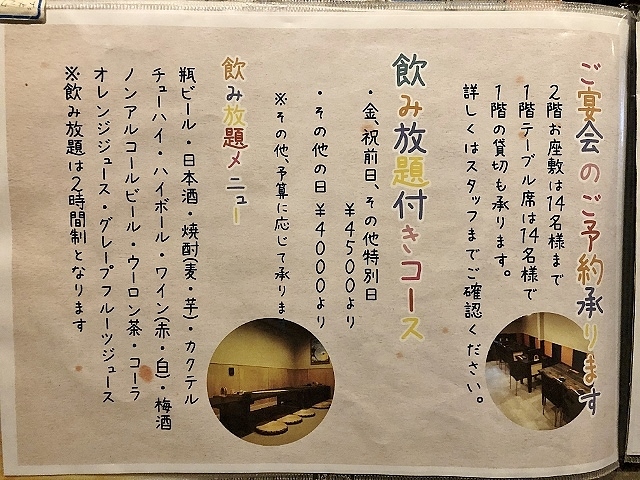 ご宴会のご予約承ります
2階お座敷は14名様まで
1階テーブル席は14名様で
1階の貸切も承ります。
詳しくはスタッフまでご確認ください。
飲み放題付きコース
・金、祝前日、その他特別日
￥4500より
・その他の日 ￥4000より
※その他、予算に応じて承りま
飲み放題メニュー
瓶ビール・日本酒・焼酎(麦・芋)・カクテル
チューハイ・ハイボール・ワイン(赤・白)・梅酒
ノンアルコールビール・ウーロン茶・コーラ
オレンジジュース・グレープフルーツジュース
※飲み放題は2時間制となります